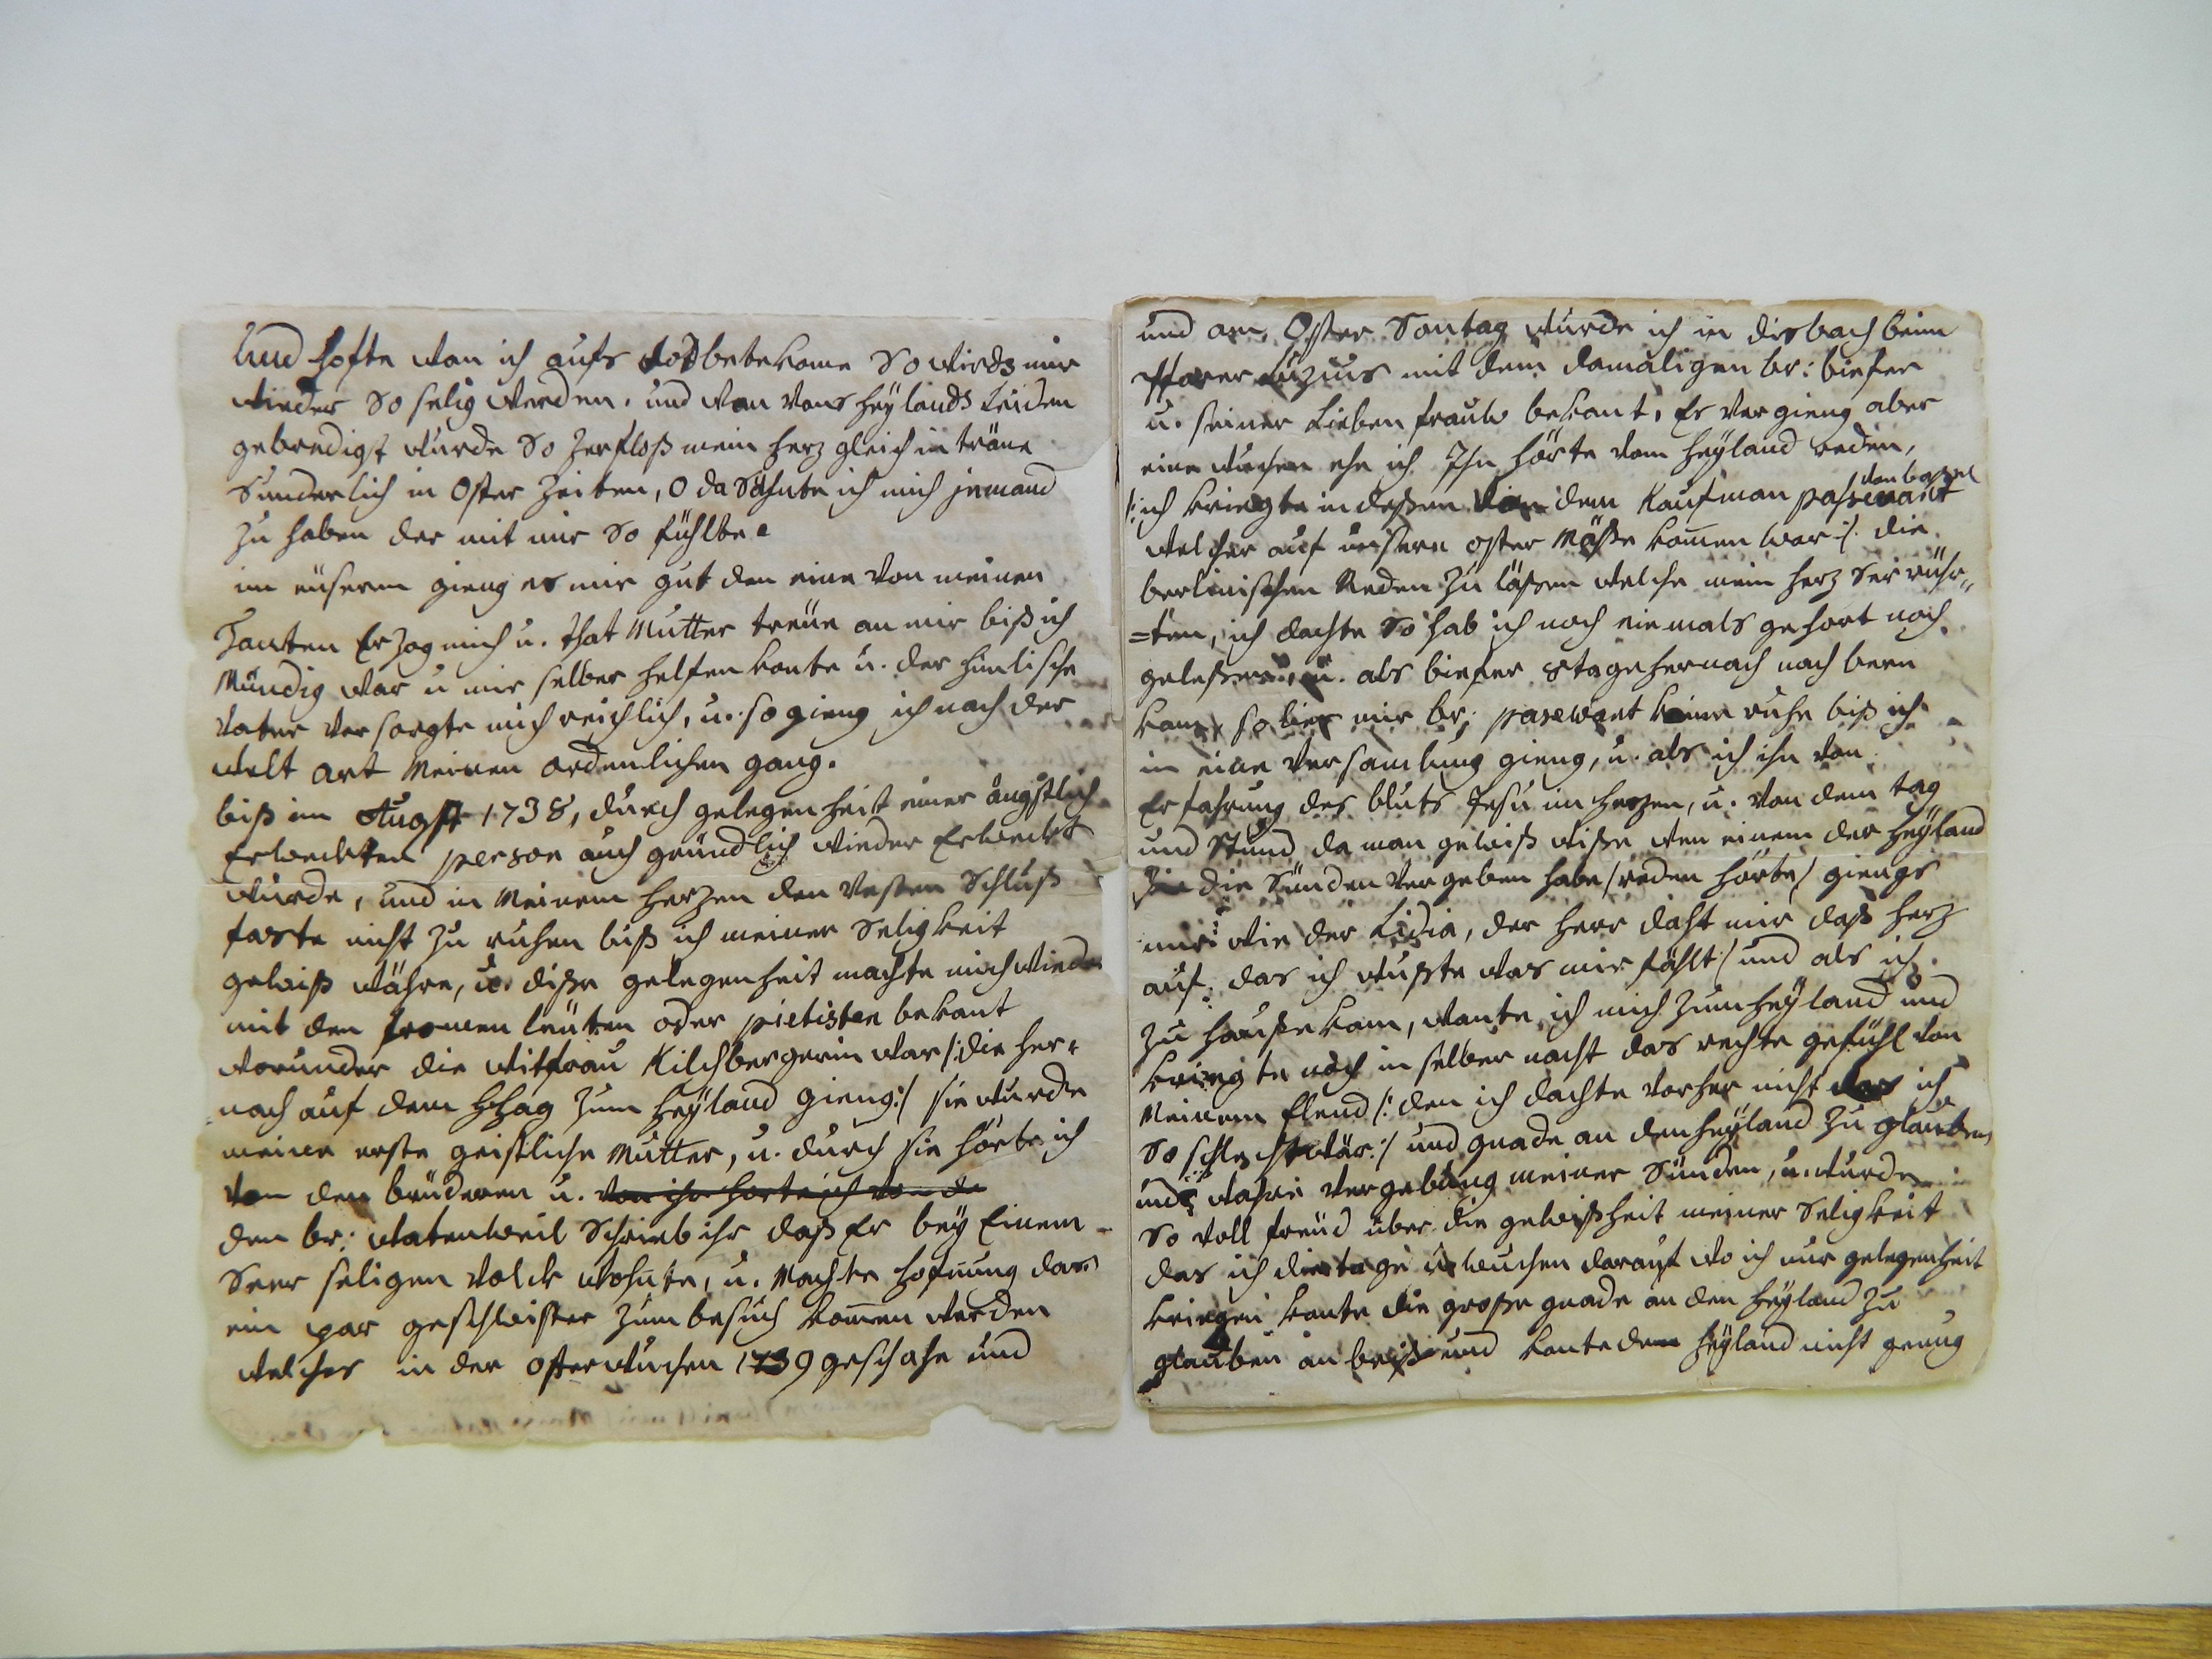 Und hofte wan ich aufs todbete kome So wirds mir
wieder So selig werden. und wan vons heÿlands leiden
gebredigt wurde So zerfloß mein herz gleich in träne
Sunderlich in Oster Zeiten, O da Söhnte ich mich jemand
zu haben der mit mir So fühlte
im eüseren gieng es mir gut den eine von meinen
Tanten Er zog mich u. that Mutter treüe an mir biß ich
Mündig war u mir selber helfen konte u. der himlische
vater versorgte mich reichlich, u. so gieng ich nach der
welt art Meinen ordenlichen gang.
biß im Augst 1738, durch gelegenheit einer ängstlich
Erweckten person auch gründlich wieder Erweckt
wurde, und in Meinem herzen den vesten Schluß
faste nicht zu ruhen biß ich meiner Seligkeit
gewiß währe, u. diße gelegenheit machte mich wieder
mit den fromen leüten oder pietisten bekant
worunder die witfrau Kilchbergerin war /: die her-
nach auf dem hhag zum heÿland gieng :/ sie wurde
meine erste geistliche Mutter, u. durch sie hörte ich
von den brüderen u. von ihr horte ich von de
den br: watenweil Schrieb ihr daß Er beÿ Einem
Seer seligen volck wohnte, u. Machte hofnung das
ein par geschwister zum besuch komen werden
welches in der osterwuchen 1739 geschahe und
und am Oster Sontag wurde ich in disbach beim
Pfarer Luzius mit dem damaligen br: biefer
u. seiner Lieben frauw bekant, Es vergieng aber
eine wuchen ehe ich Ihn hörte vom heÿland reden,
von basel
/: ich kriegte indeßen von dem Kaufman passewant
welcher auf unsere oster Mäße komen war :/ die
berlinischen Reden zu läßen welche mein herz Ser rühr-
=ten, ich dachte So hab ich noch niemals gehort noch
geleßen, u. als biefer 8 tage hernach nach bern
kam, so lies mir br: pasewant keine ruhe biß ich
in eine versamlung gieng, u. als ich ihn von
Erfahrung des bluts Jesu im herzen, u. von dem tag
und Stund da man gewiß wiße wen einem der heÿland
die Sünden vergeben habe / reden hörte / giengs
mir wie der Lidia, der herr daht mir daß herz
auf. das ich wußte was mir fählt / und als ich
zu hauße kam, wante ich mich zum heÿland und
kriegte noch in selber nacht das rechte gefühl von
Meinem Elend /: den ich dachte vorher nicht das ich
So schlecht wär :/ und gnade an den heÿland zu glauben
und wahre vergebung meiner Sünden, u. wurde
So voll freüd über die gewißheit meiner Seligkeit
das ich die tage u wuchen darauf wo ich nur gelegenheit
kriegen konte die große gnade an den heÿland zu
glauben an und konte dem heÿland nicht genug